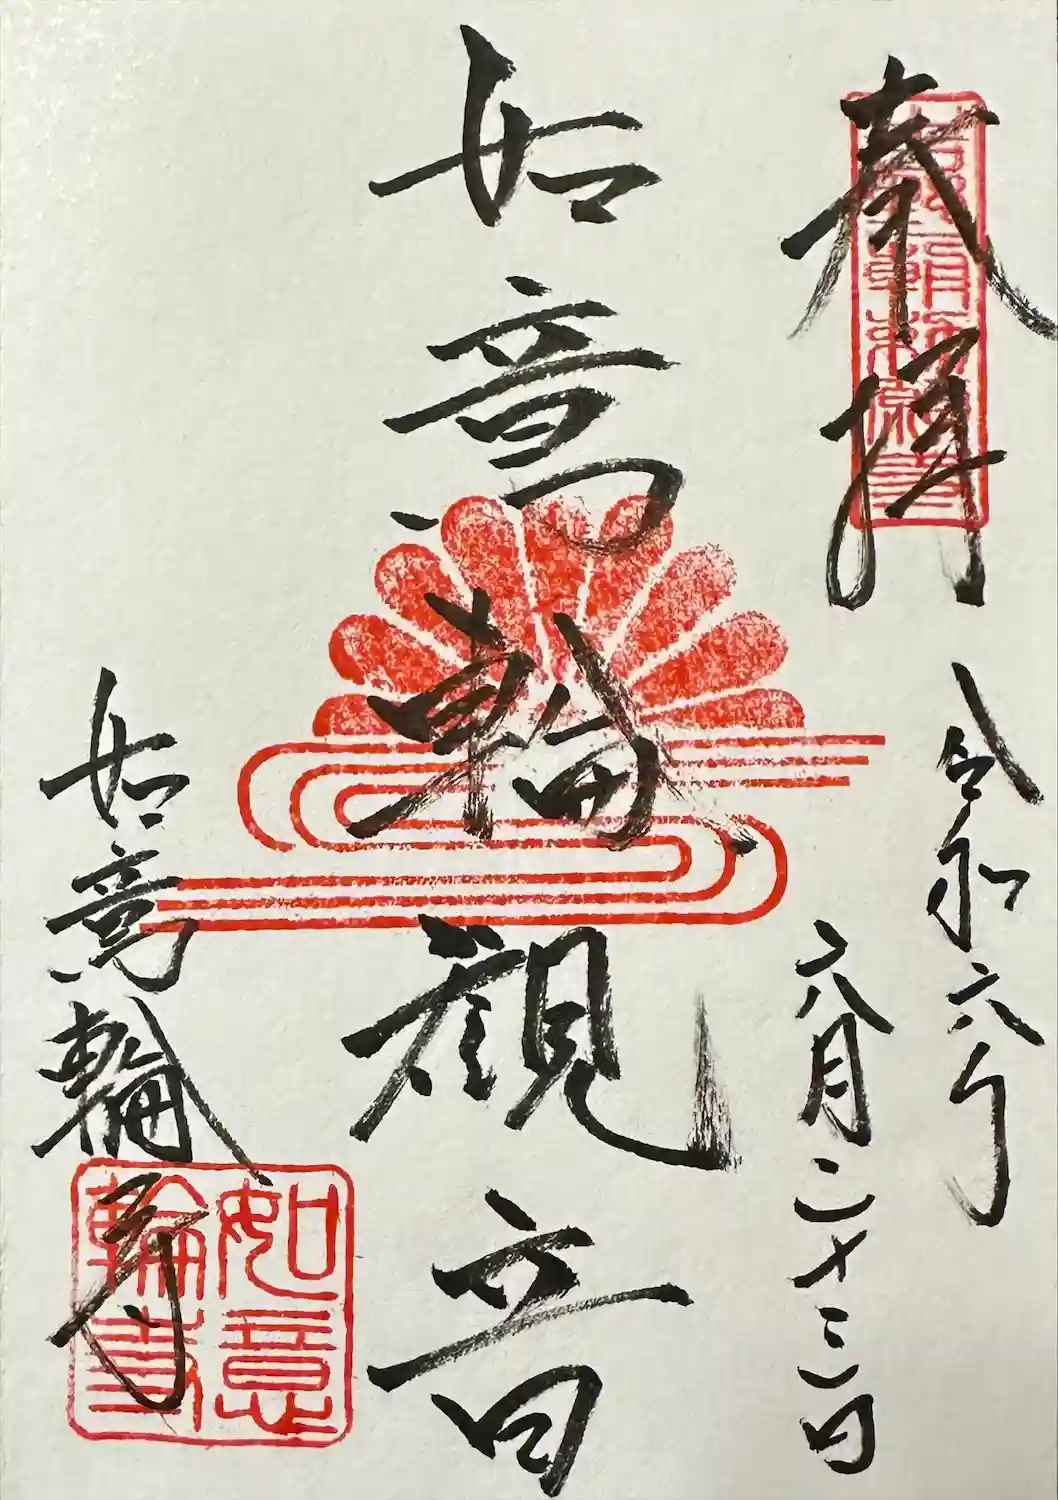 奉拝
令和六年
六月二十三日
如意輪観音
如意輪寺
如意
輪寺